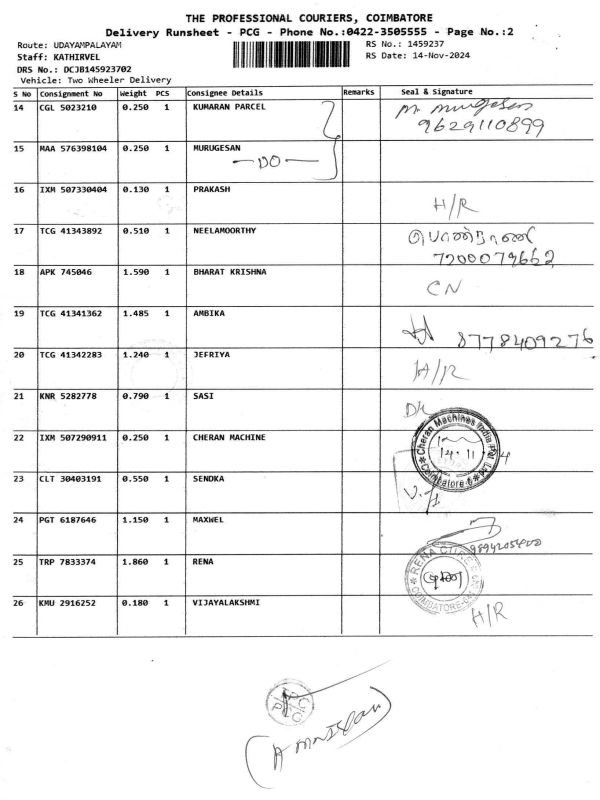 THE PROFESSIONAL COURIERS, COIMBATORE
Delivery Runsheet - PCG - Phone No.:0422-3505555 - Page No.:2
Route: UDAYAMPALAYAM RS No.: 1459237
Staff: KATHIRVEL RS Date: 14-Nov-2024
DRS No.: DCJB145923702
Vehicle: Two Wheeler Delivery
S No Consignment No Weight PCS Consignee Details Remarks Seal & Signature
14 CGL 5023210 0.250 1 KUMARAN PARCEL M. Murugesan
9629110899
15 MAA 576398104 0.250 1 MURUGESAN
— DO —
16 IXM 507330404 0.130 1 PRAKASH H/R
17 TCG 41343892 0.510 1 NEELAMOORTHY
7200079662
18 APK 745046 1.590 1 BHARAT KRISHNA CN
19 TCG 41341362 1.485 1 AMBIKA 8778409276
20 TCG 41342283 1.240 1 JEFRIYA H/R
21 KNR 5282778 0.790 1 SASI
22 IXM 507290911 0.250 1 CHERAN MACHINE Cheran Machines India (P) Ltd Coimbatore-6
14.11.
23 CLT 30403191 0.550 1 SENDKA
24 PGT 6187646 1.150 1 MAXWEL
25 TRP 7833374 1.860 1 RENA RENA COIMBATORE
26 KMU 2916252 0.180 1 VIJAYALAKSHMI H/R